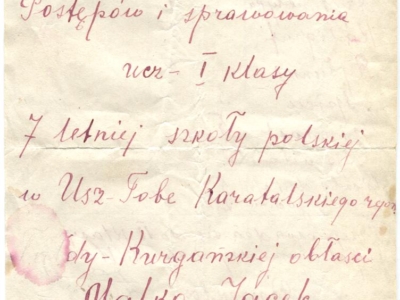 Postępów i sprawowania
ucz- I klasy
7 letniej szkoły polskiej
w Usz-Tobe Karatalskiego rejon
dy-Kurgańskiej obłasci
Jacek